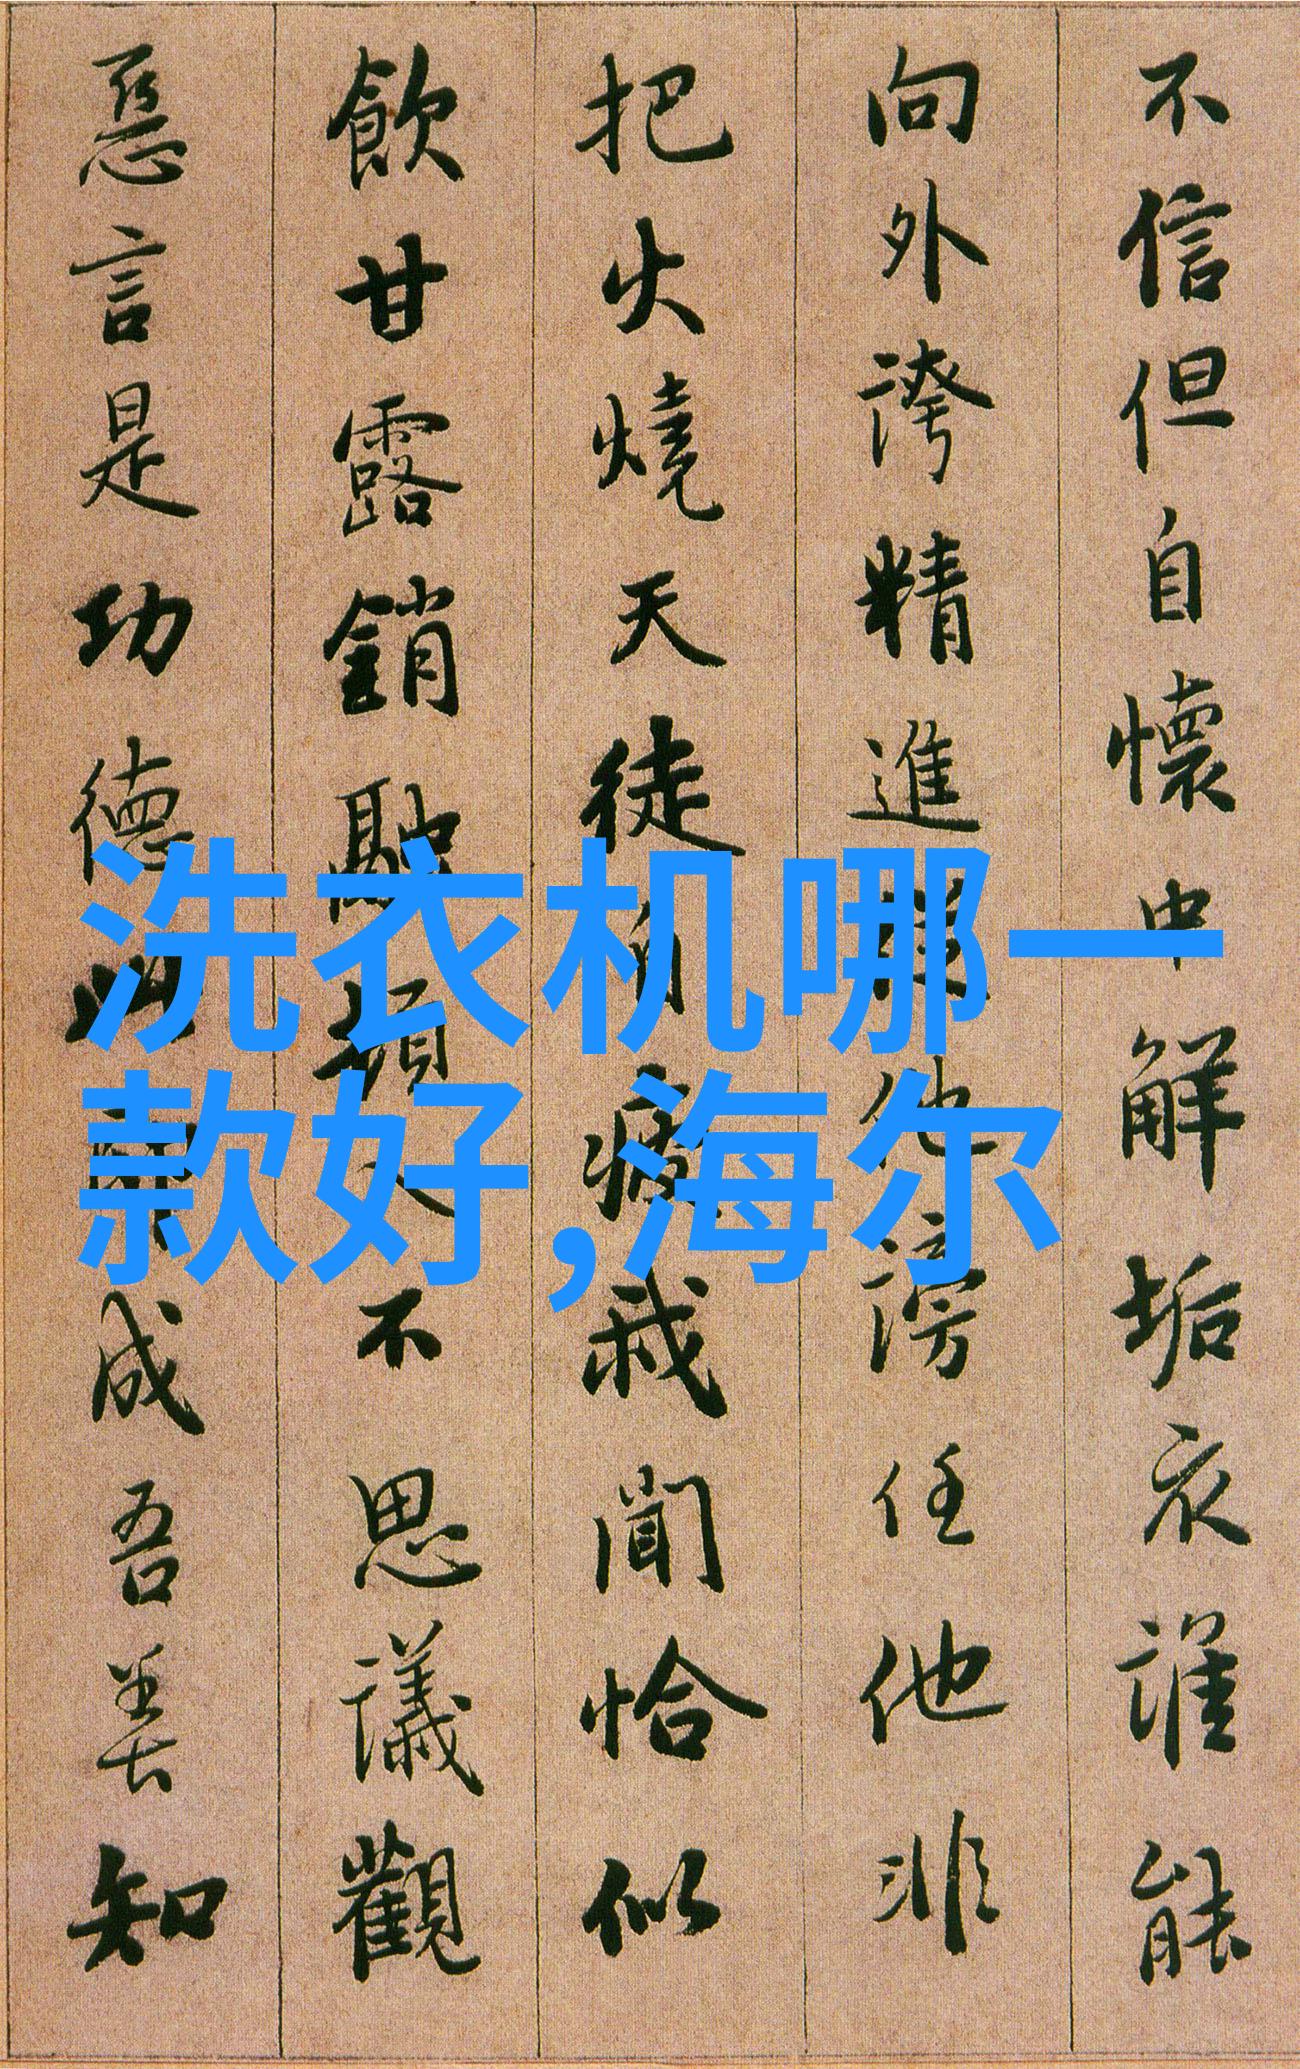 不信但自懷中解垢衣誰能
向外誇精進從他謗任他非
把火燒天徒自疲我聞恰似
飲甘露銷融頓入不思議觀
惡言是功德此即成吾善知
洗衣机哪一
款好,海尔